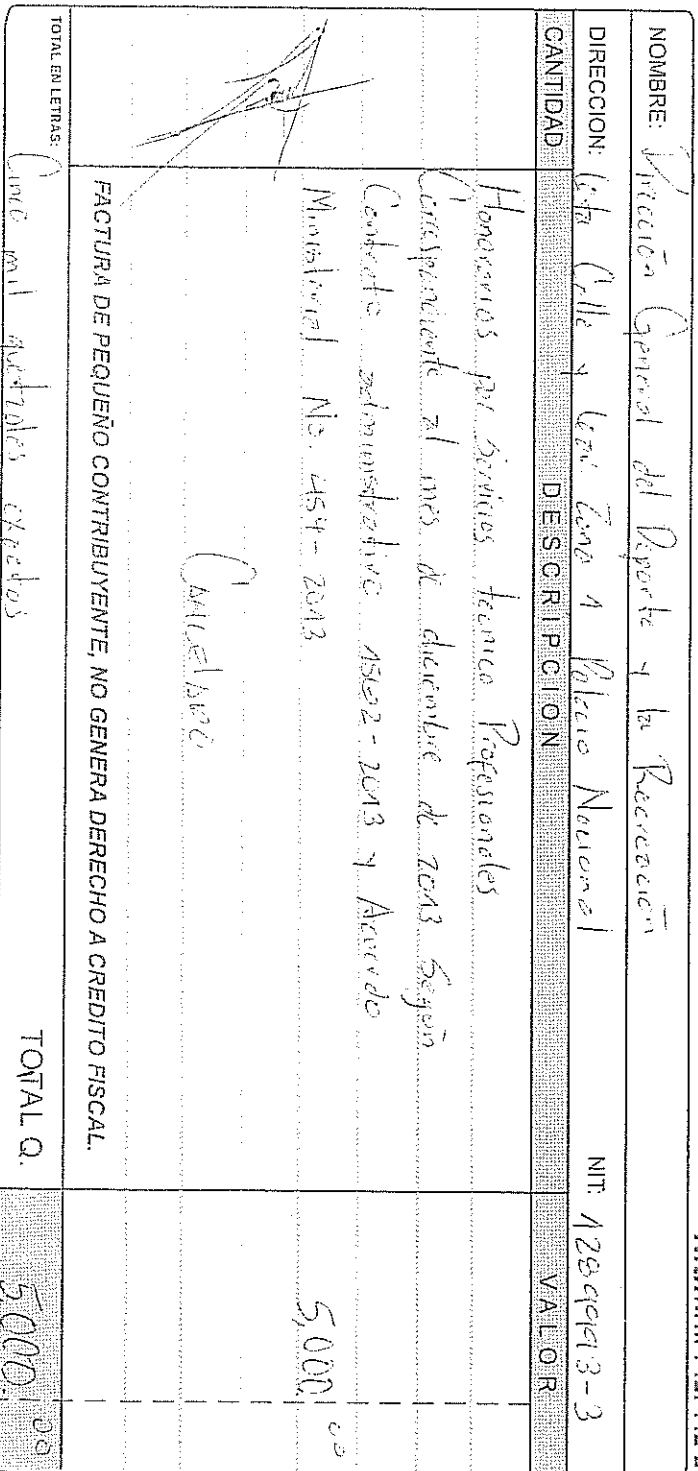 NOMBRE: Dirección General del Deporte y la Recreación
DIRECCION: 6ta Calle y 6ta Zona 1 Palacio Nacional NIT: 1289993-3
CANTIDAD DESCRIPCION VALOR
Honorarios por Servicios técnico Profesionales
Correspondiente al mes de diciembre de 2013 Según
Contrato administrativo 1562-2013 y Acuerdo
Ministerial No. 454-2013 5,000.00
CANCELADO
FACTURA DE PEQUEÑO CONTRIBUYENTE, NO GENERA DERECHO A CREDITO FISCAL.
TOTAL EN LETRAS: Cinco mil quetzales exactos TOTAL Q. 5,000.00